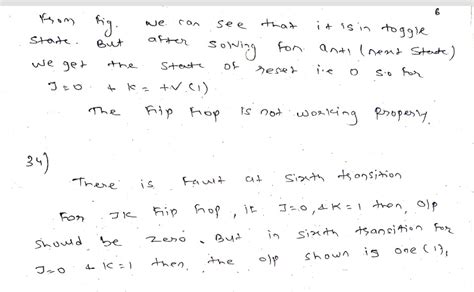 6
From Fig. we can see that it is in toggle
state. But after solving for an+1 (next state)
we get the state of reset i.e 0 so for
J=0 & K= +V (1)
The Flip Flop is not working properly.
34)
There is fault at sixth transition
For JK Flip Flop, if J=0, & K=1 then, o/p
should be zero. But in sixth transition for
J=0 & K=1 then, the o/p shown is one (1),